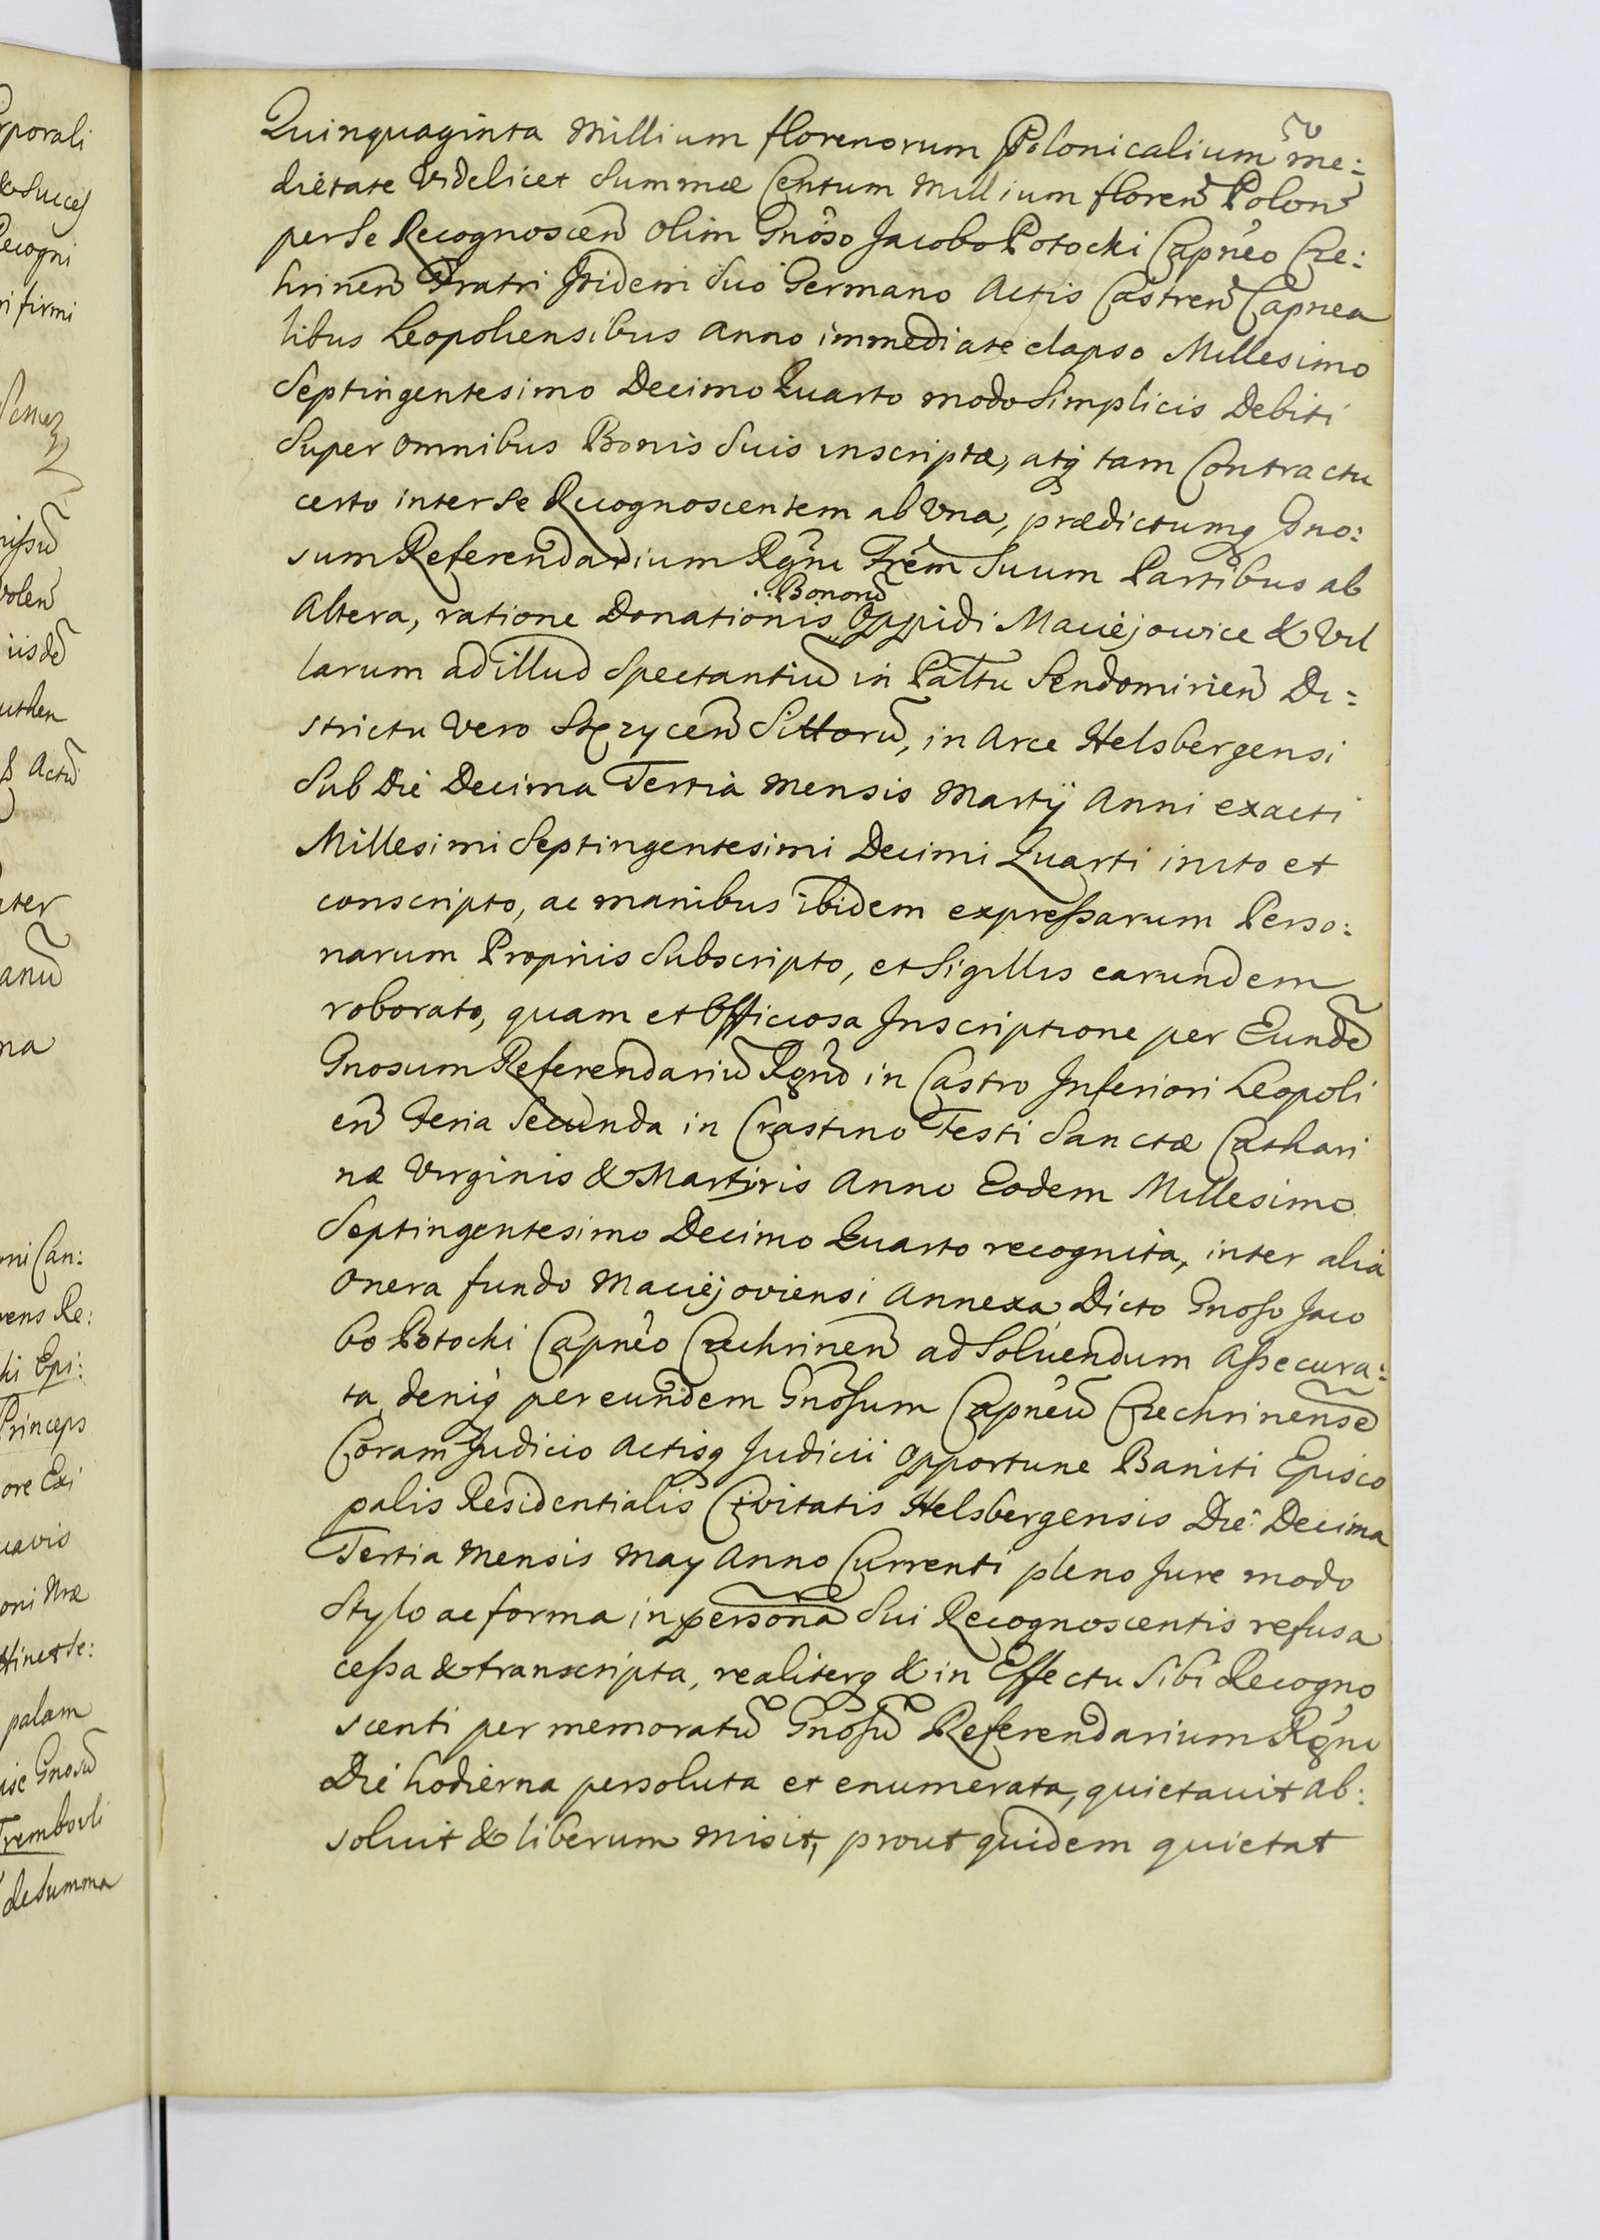 rporali
& Succes
Recogni
ri firmi
nissũ
volen̄
iisdẽ
uthen
& Actũ
nter
anũ
na
oni Can:
vens Re:
ki Epi:
Princeps
ore Exi
uavis
oni Nræ
palam
isc Gnosũ
Trembovli
de Summa
Quinquaginta Millium florenorum Polonicalium me:
dietate Videlicet Summæ Centum Millium floren̄ Polon̄
per Se Recognoscen̄ olim Gnoso Jacobo Potocki Capneo Cze:
hrinen̄ Fratri Itidem Suo Germano Actis Castren̄ Capnea
libus Leopoliensibus Anno immediate elapso Millesimo
Septingentesimo Decimo Quarto modo Simplicis Debiti
Super omnibus Bonis Suis inscriptæ, atq tam Contractu
certo inter Se Recognoscentem ab Vna, prædictumq Gno:
sum Referendarium Rgni Frem Suum Partibus ab
Altera, ratione Donationis Bonorũ Oppidi Maciejowice & Vil
larum ad illud Spectantiũ in Palttu Sendomirien̄ Di:
strictu Vero Stęzycen̄ Sittorũ, in Arce Helsbergensi
Sub Die Decima Tertia Mensis Martÿ Anni exacti
Millesimi Septingentesimi Decimi Quarti inito et
conscripto, ac manibus ibidem expressarum Perso:
narum Proprijs Subscripto, et Sigillis earundem
roborato, quam et Officiosa Inscriptione per Eundẽ
Gnosum Referendariũ Rgni in Castro Inferiori Leopoli
en̄ Feria Secunda in Crastino Festi Sanctæ Cathari
næ Virginis & Martyris Anno Eodem Millesimo
Septingentesimo Decimo Quarto recognita, inter alia
Onera fundo Maciejoviensi Annexa, Dicto Gnoso Jaco
bo Potocki Capneo Czechrinen̄ ad Soluendum Assecura:
ta, deniq per eundem Gnosum Capneũ Czechrinensẽ
Coram Judicio Actisq Judicii Opportune Baniti Episco
palis Residentialis Civitatis Helsbergensis Die Decima
Tertia Mensis May Anno Currenti pleno Jure modo
Stylo ac forma in personã Sui Recognoscentis refusa
cessa & transcripta, realiterq & in Effectu Sibi Recogno
scenti per memoratũ Gnosũ Referendarium Rgni
Die hodierna persoluta et enumerata, quietauit ab:
soluit & liberum misit, prout quidem quietat